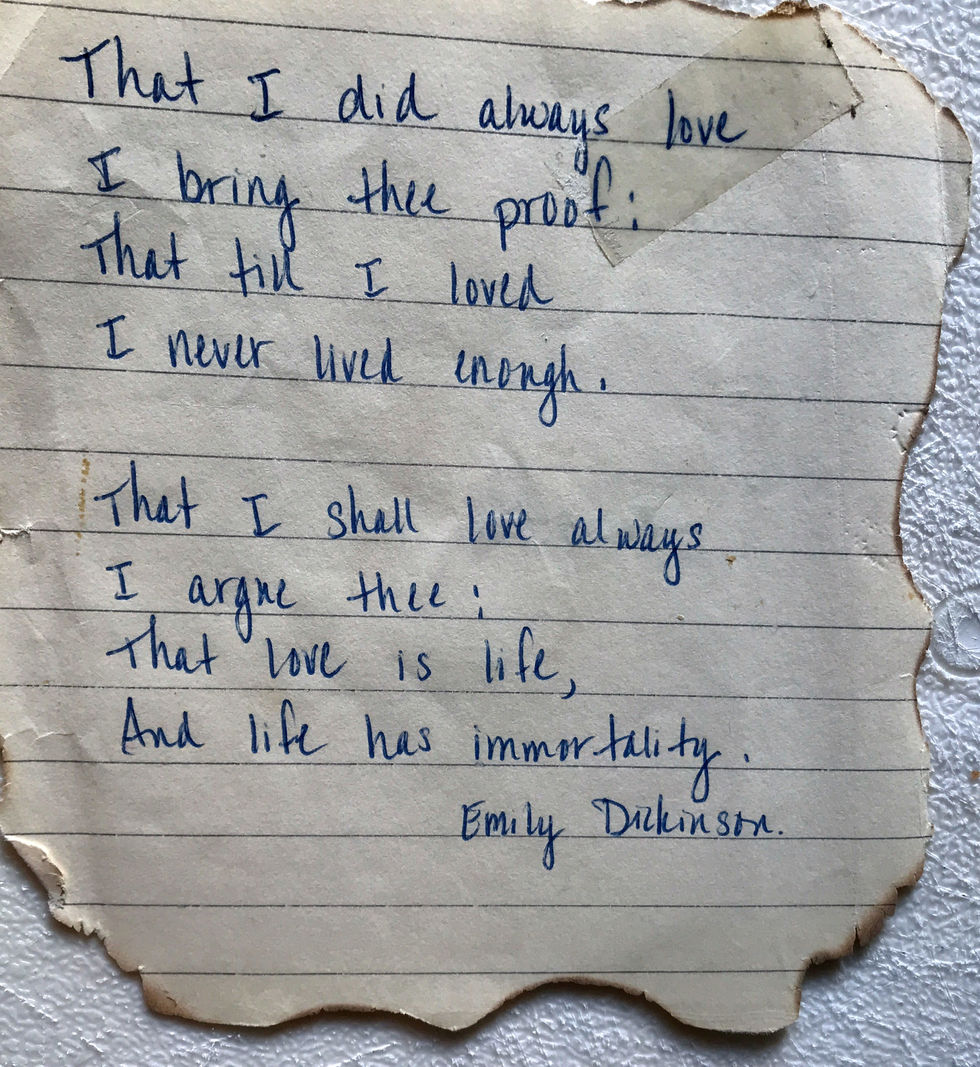 That I did always love
I bring thee proof:
That till I loved
I never lived enough.
That I shall love always
I argue thee;
That love is life,
And life has immortality.
Emily Dickinson.